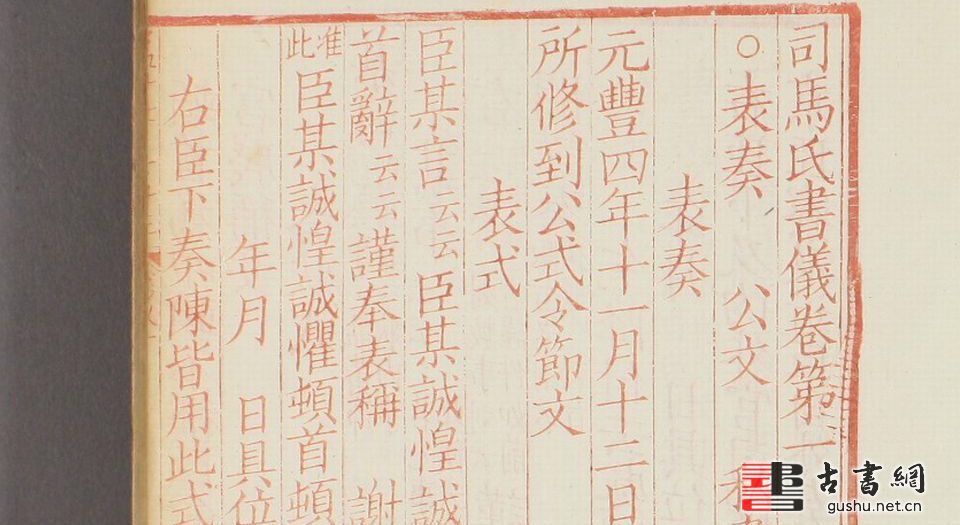 司馬氏書儀卷第一
○表奏 公文
表奏
元豐四年十一月十二日
所修到公式令節文
表式
臣某言云云臣某誠惶誠
首辭云云謹奉表稱 謝
准此臣某誠惶誠懼頓首頓
年月 日具位
右臣下奏陳皆用此式
古書網
gushu.net.cn